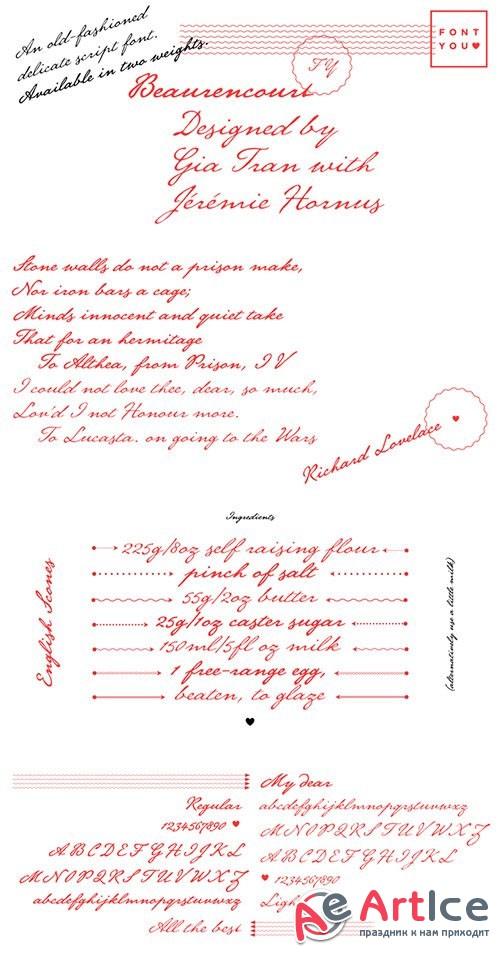 An old-fashioned
delicate script font.
Available in two weights.
FONT
YOU♥
TY
Beaurencourt
Designed by
Gia Tran with
Jérémie Hornus
Stone walls do not a prison make,
Nor iron bars a cage;
Minds innocent and quiet take
That for an hermitage
To Althea, from Prison, IV
I could not love thee, dear, so much,
Lov'd I not Honour more.
To Lucasta. on going to the Wars
Richard Lovelace
Ingredients
English Scones
225g/8oz self raising flour
pinch of salt
55g/2oz butter
25g/1oz caster sugar
150ml/5fl oz milk
1 free-range egg,
beaten, to glaze
(alternatively use a little milk)
♥
Regular
1234567890 ♥
ABCDEFGHIJKL
MNOPQRSTUVWXZ
abcdefghijklmnopqrstuvwxz
All the best
My dear
abcdefghijklmnopqrstuvwxz
MNOPQRSTUVWXZ
ABCDEFGHIJKL
♥ 1234567890
Ligh
ArtIce
праздник к нам приходит